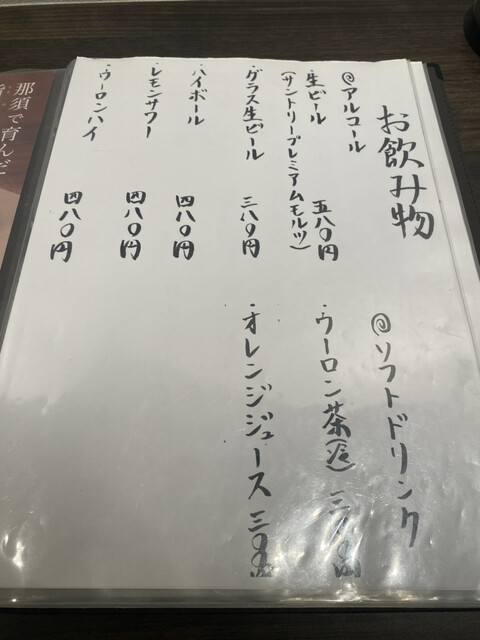 お飲み物
@アルコール
・生ビール 五八〇円
(サントリープレミアムモルツ)
・グラス生ビール 三八〇円
・ハイボール 四八〇円
・レモンサワー 四八〇円
・ウーロンハイ 四八〇円
@ソフトドリンク
・ウーロン茶
・オレンジジュース
那須で育んだ